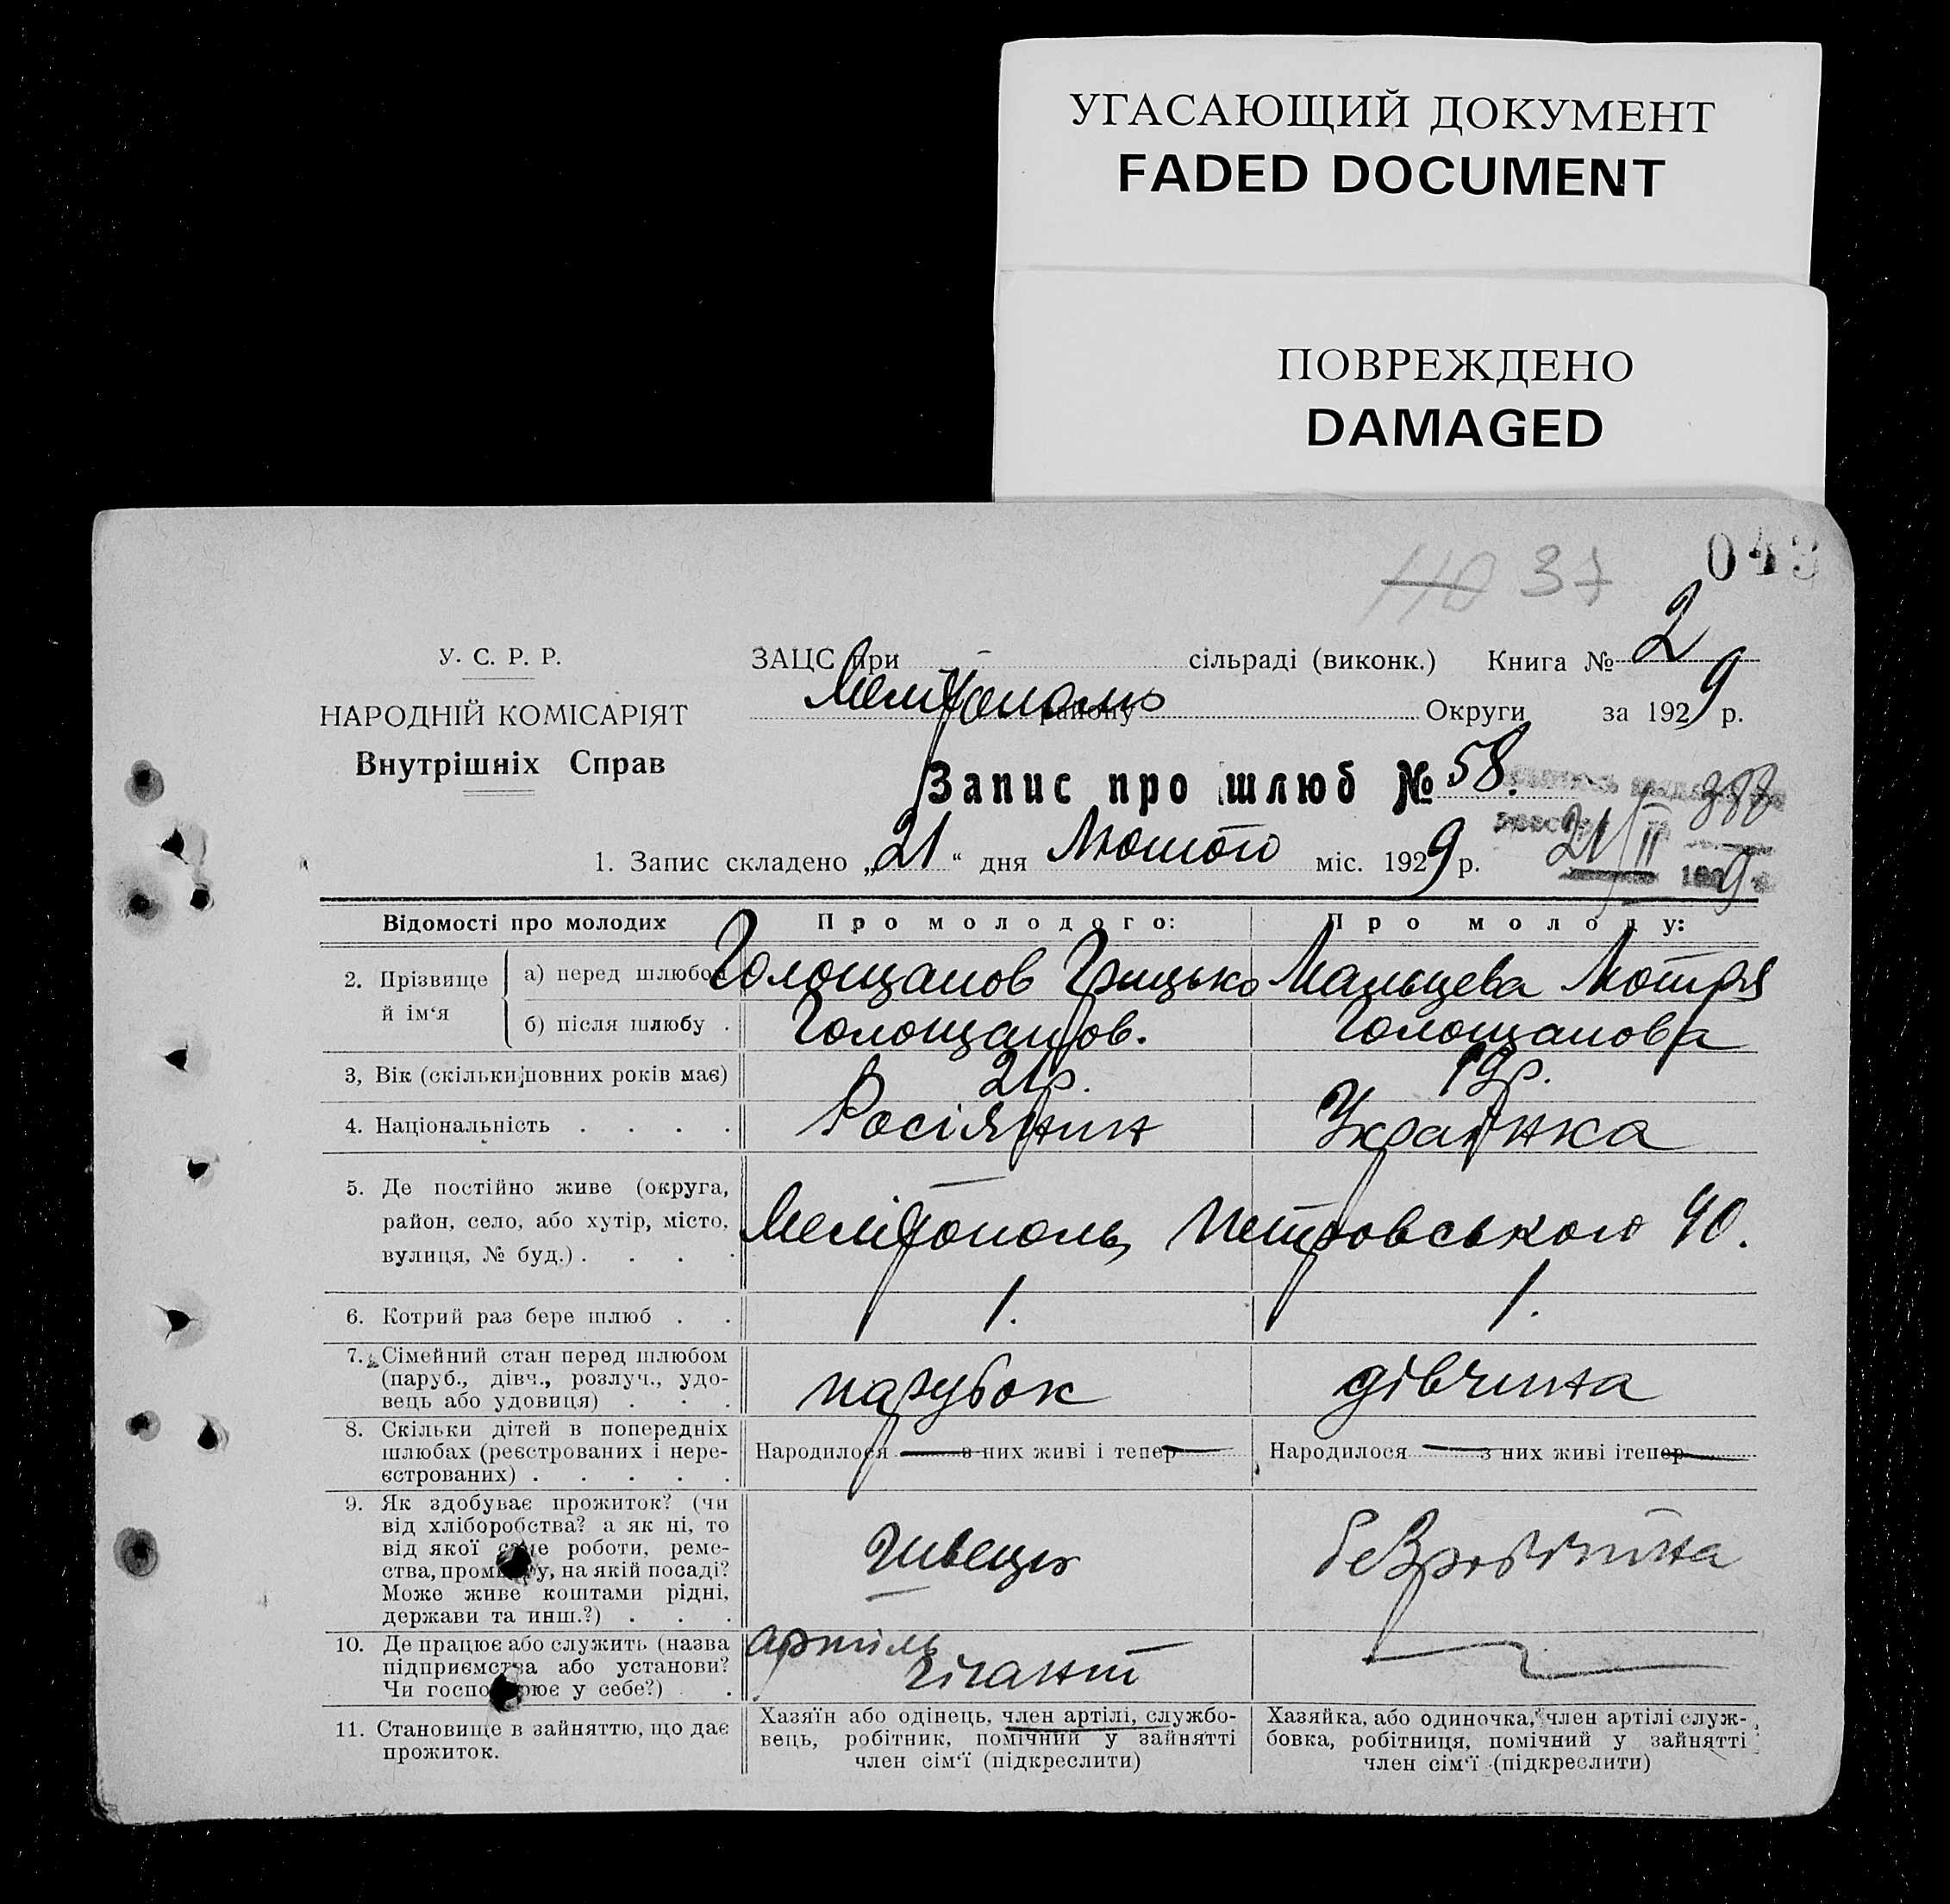 УГАСАЮЩИЙ ДОКУМЕНТ
FADED DOCUMENT
ПОВРЕЖДЕНО
DAMAGED
043
110 37
У. С. Р. Р.
НАРОДНІЙ КОМІСАРІЯТ
Внутрішніх Справ
ЗАЦС при сільраді (виконк.) Книга № 2
Мелітополь району Округи за 1929 р.
Запис про шлюб № 58.
388
21/II 1929
1. Запис складено „21“ дня Лютого міс. 1929 р.
Відомості про молодих
Про молодого:
Про молоду:
2. Прізвище й ім‘я
а) перед шлюбом
Голощапов Грицько
Мальцева Мотря
б) після шлюбу .
Голощапов.
Голощапова
3, Вік (скільки повних років має)
21р.
19р.
4. Національність . . . .
Росіянин
Українка
5. Де постійно живе (округа,
район, село, або хутір, місто,
вулиця, № буд.) . . . .
Мелітополь, Петровського 40.
6. Котрий раз бере шлюб . .
1.
1.
7. Сімейний стан перед шлюбом
(паруб., дівч., розлуч., удо-
вець або удовиця) . . .
парубок
дівчина
8. Скільки дітей в попередніх
шлюбах (реєстрованих і нере-
єстрованих) . . . . .
Народилося з них живі і тепер
Народилося з них живі ітепер
9. Як здобуває прожиток? (чи
від хліборобства? а як ні, то
від якої саме роботи, реме-
ства, промислу, на якій посаді?
Може живе коштами рідні,
держави та инш.?) . . .
Швець
безробітна
10. Де працює або служить (назва
підприємства або установи?
Чи господарює у себе?) .
артіль
Гігант
11. Становище в зайняттю, що дає
прожиток.
Хазяїн або одінець, член артілі, службо-
вець, робітник, помічний у зайнятті
член сім‘ї (підкреслити)
Хазяйка, або одиночка, член артілі служ-
бовка, робітниця, помічний у зайнятті
член сім‘ї (підкреслити)